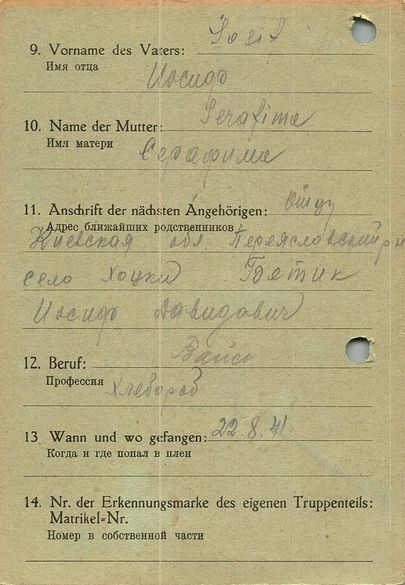 9. Vorname des Vaters: Iosif
Имя отца
Иосиф
10. Name der Mutter: Serafima
Имя матери
Серафима
11. Anschrift der nächsten Angehörigen: Отцу
Адрес ближайших родственников
Киевская обл. Переяславский р
село Хоцки Бятик
Иосиф Давидович
12. Beruf:
Профессия
Хлебороб
13. Wann und wo gefangen: 22.8.41
Когда и где попал в плен
14. Nr. der Erkennungsmarke des eigenen Truppenteils:
Matrikel-Nr.
Номер в собственной части